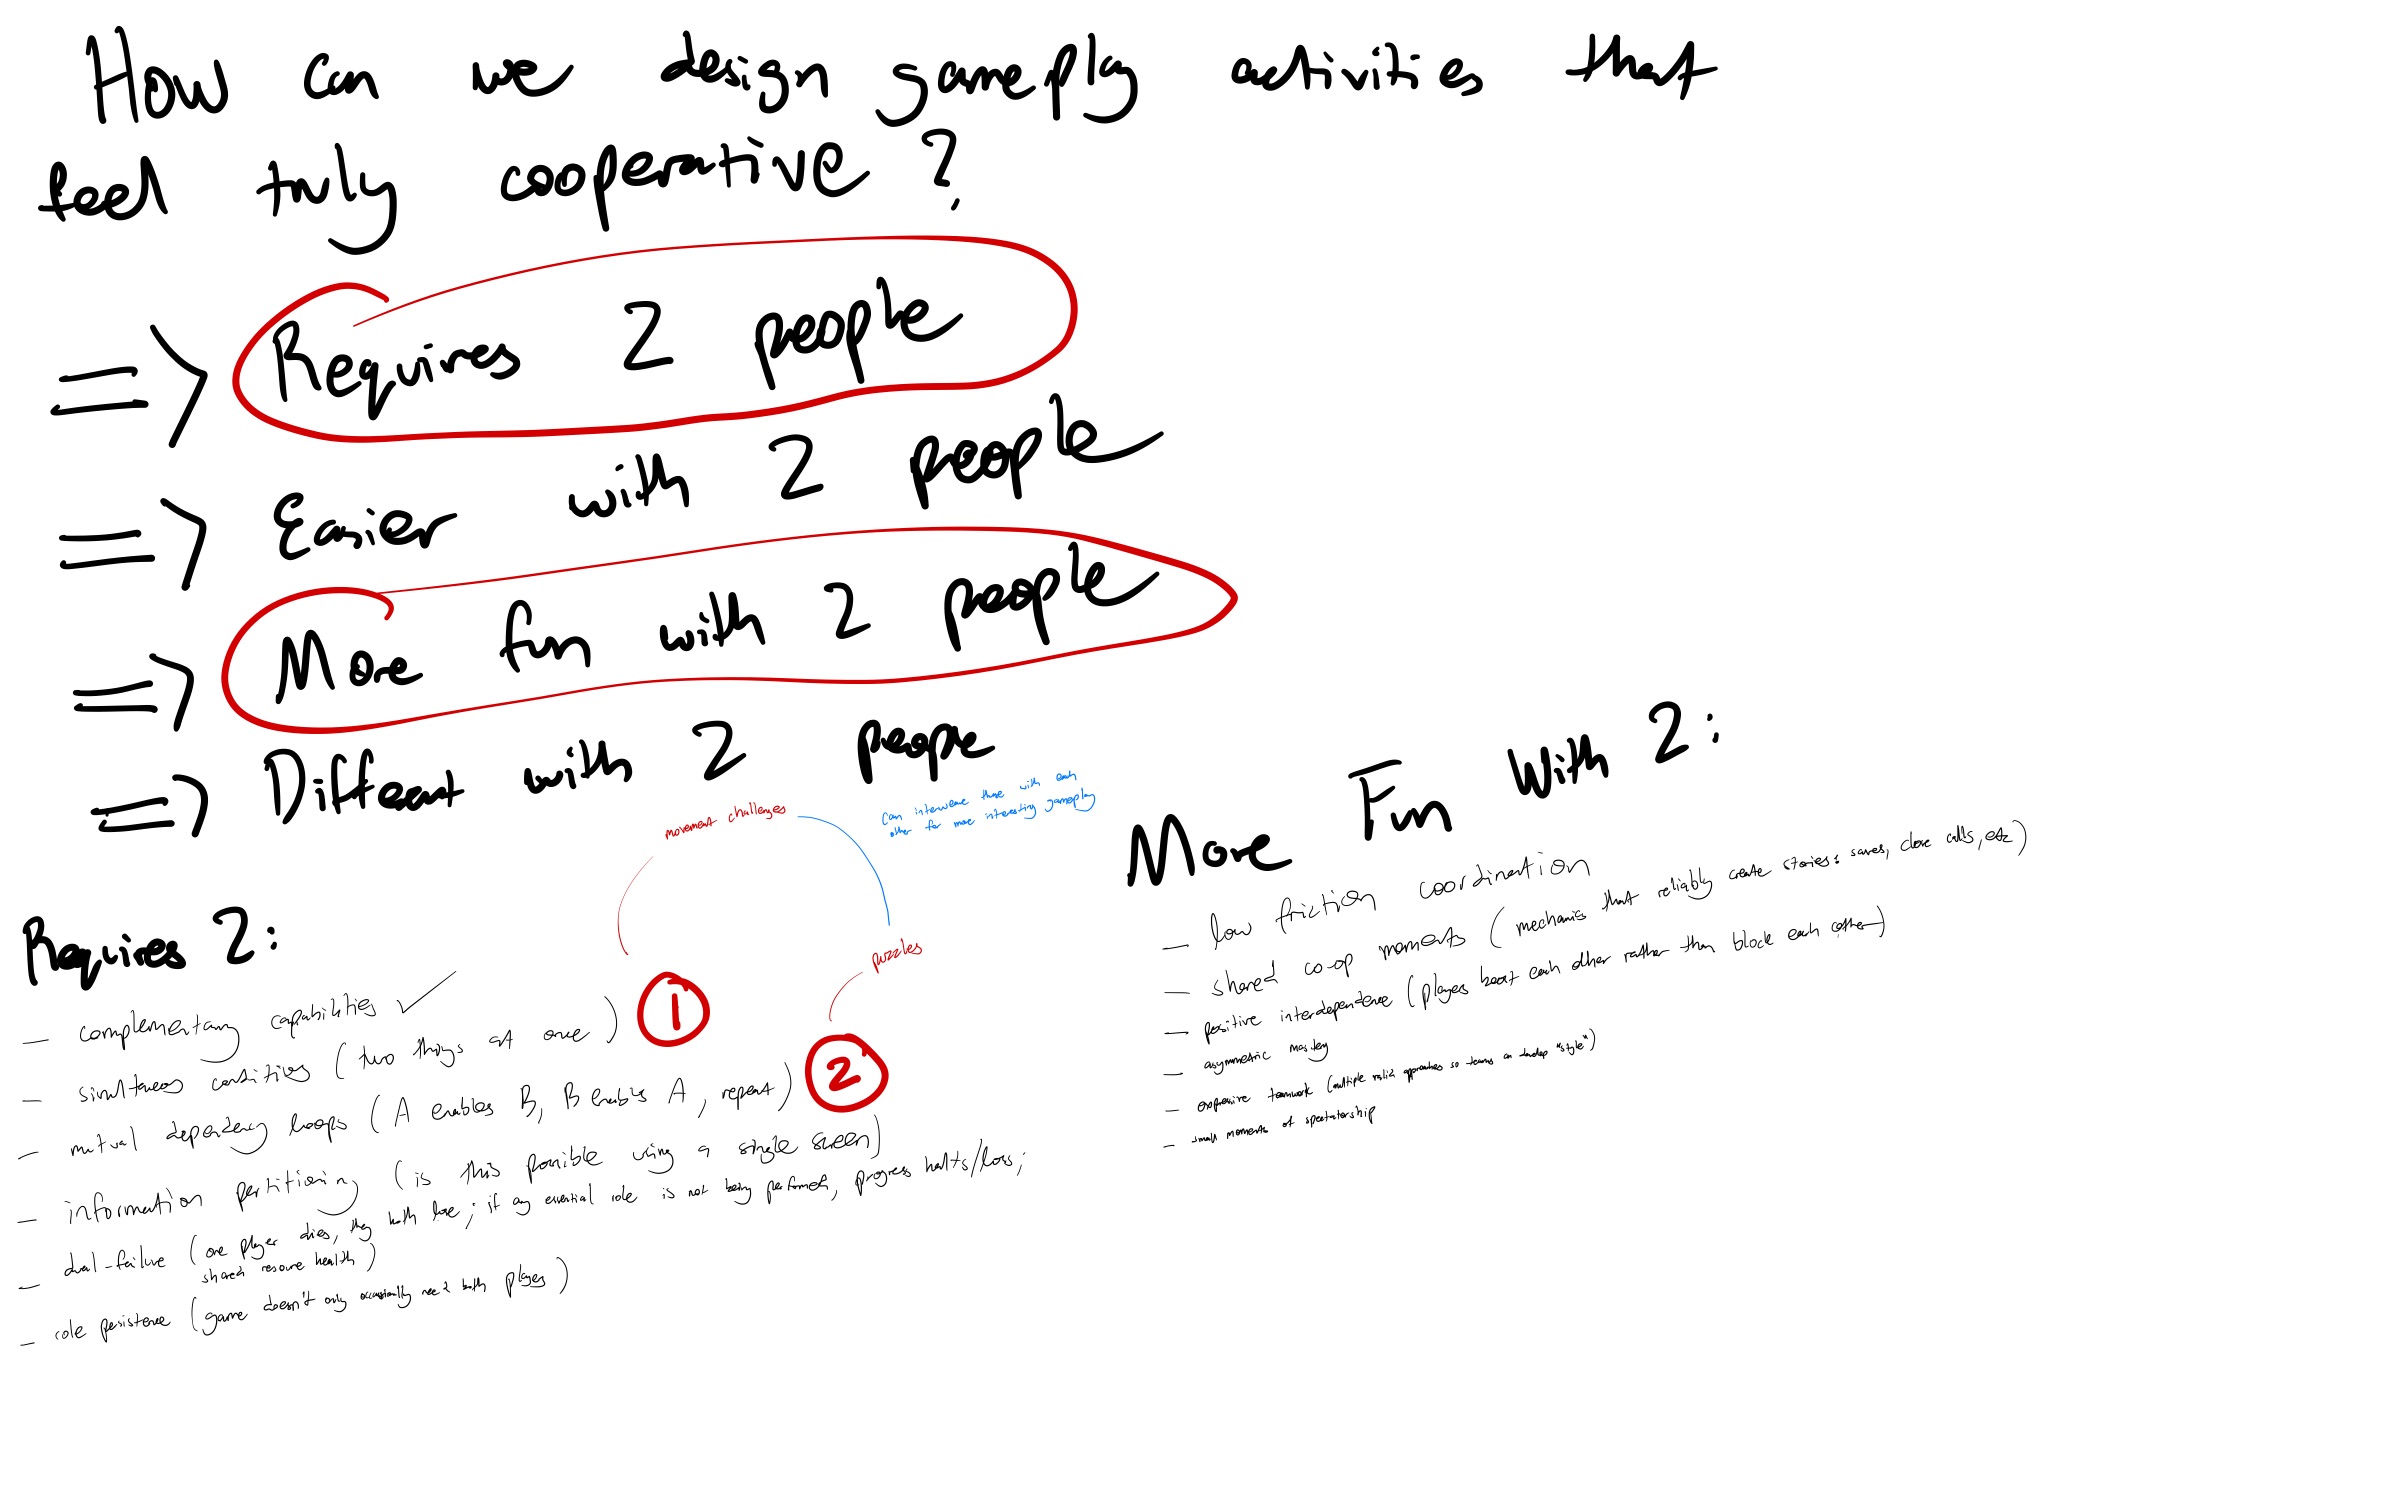 How can we design gameplay activities that
feel truly cooperative ?
=> Requires 2 people
=> Easier with 2 people
=> More fun with 2 people
=> Different with 2 people
movement challenges
can interweave these with each
other for more interesting gameplay
puzzles
Requires 2:
- complementary capabilities ✓
- simultaneous conditions (two things at once) 1
- mutual dependency loops (A enables B, B enables A, repeat) 2
- information partitioning (is this possible using a single screen)
- dual-failure (one player dies, they both lose; if any essential role is not being performed, progress halts/loss;
shared resource health)
- role persistence (game doesn't only occasionally need both players)
More Fun With 2:
- low friction coordination
- shared co-op moments (mechanics that reliably create stories: saves, close calls, etc)
- positive interdependence (players boost each other rather than block each other)
- asymmetric mastery
- expressive teamwork (multiple valid approaches so teams can develop "style")
- small moments of spectatorship